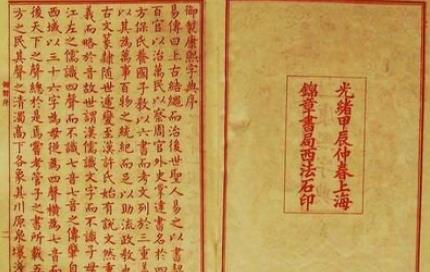 光緒甲辰仲春上海
錦章書局西法石印
御製康熙字典序
易傳曰上古結繩而治後世聖人易之以書契
百官以治萬民以察周官外史掌達書名於四
方保氏養國子教以六書而考文列於三重蓋
以其為萬事百物之統紀而足以助流政教也
古文篆隸隨世遞變至漢許氏始有說文然重
義而略於音故世謂漢儒識文字而不識子母
江左之儒識四聲而不識七音七音之傳肇自
西域以三十六字為母從為四聲橫為七音而
後天下之聲總於是焉嘗考管子之書所載五
方之民其聲之清濁高下各象其川原泉壤淺